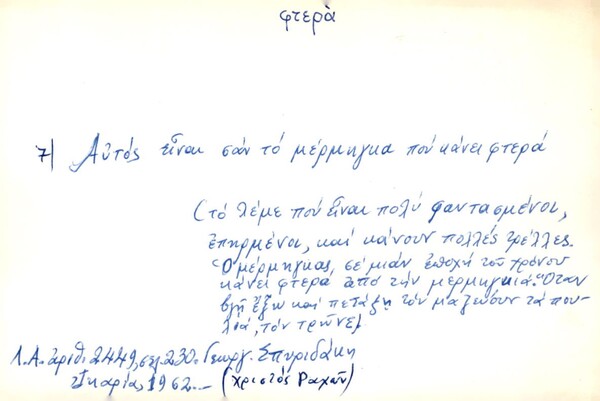 φτερὰ
7) Αὐτός εἶναι σάν τό μέρμηγκα πού κάνει φτερά
(τό λέμε πού εἶναι πολύ φαντασμένοι,
ἐπηρμένοι, καί κάνουν πολλές τρέλλες.
Ὁ μέρμηγκας, σέ μιάν ἐποχή τοῦ χρόνου
κάνει φτερά ἀπό τήν μερμηγκιά. Ὅταν
βγῆ ἔξω καί πετάξη τόν μαζεύουν τά που-
λιά, τόν τρῶνε)
Λ.Α. ἀριθ. 2449, σελ. 230. Γεωργ. Σπυριδάκη
Ἰκαρία, 1962.— (Χριστός Ραχῶν)